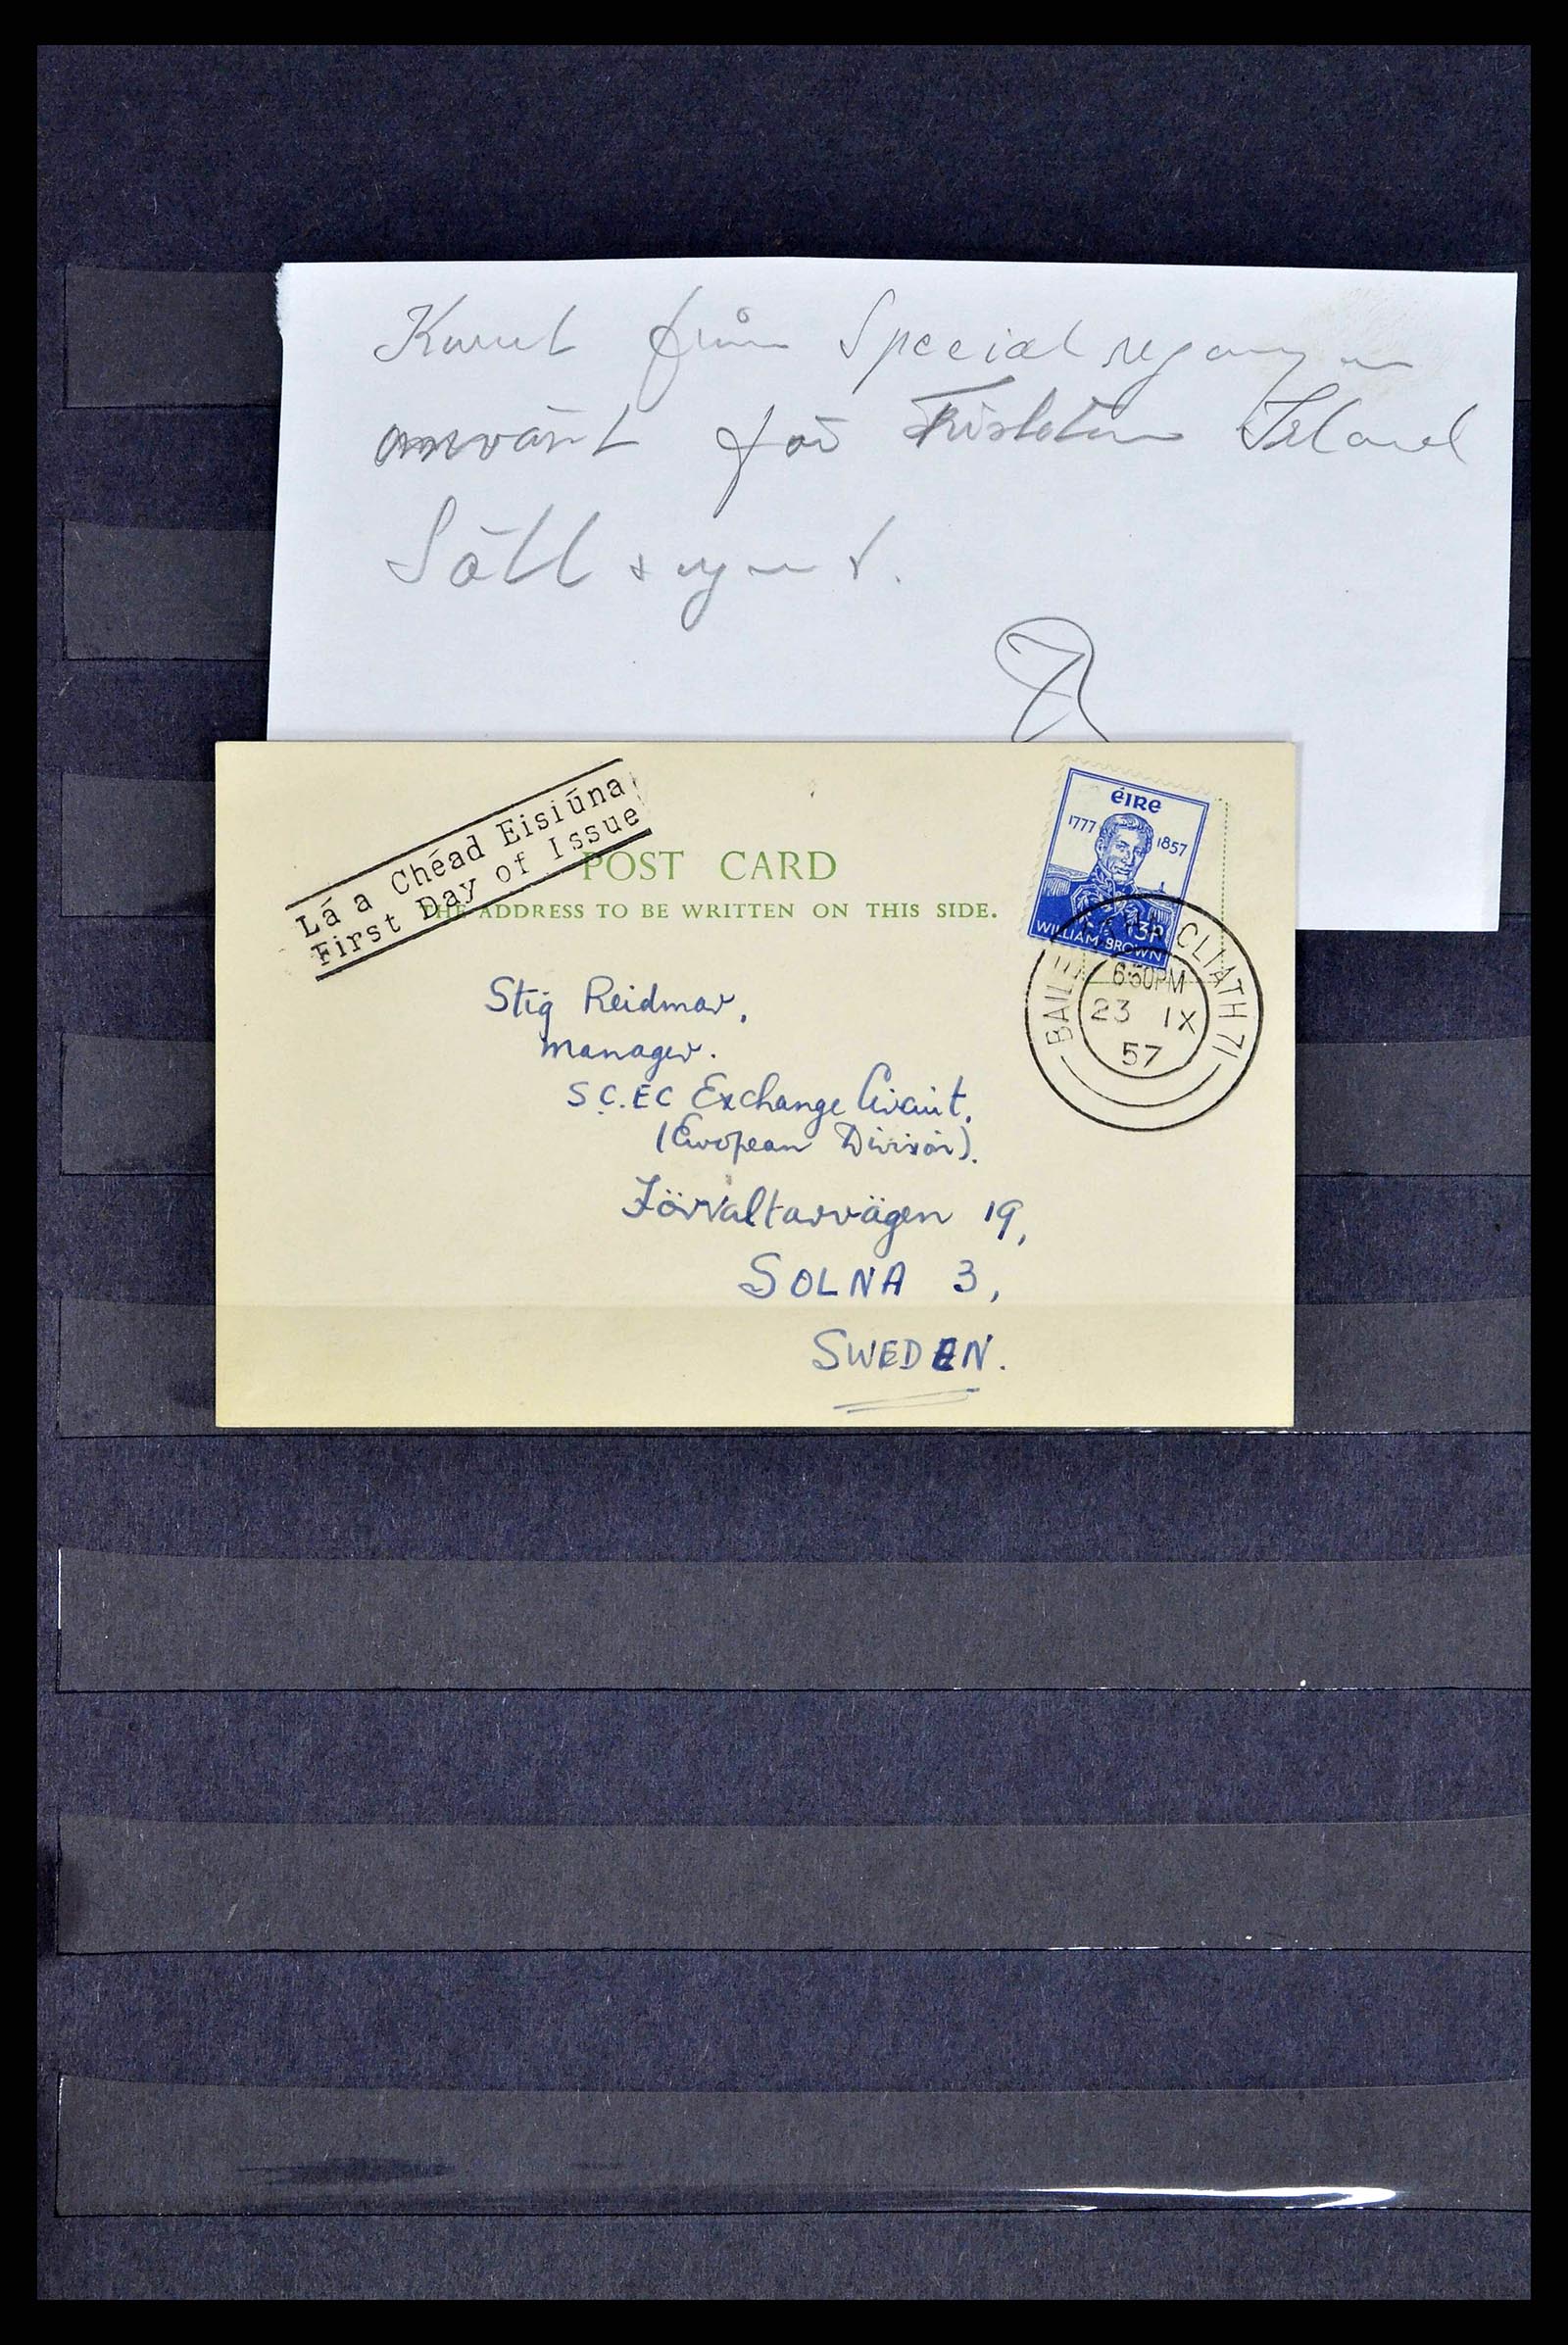 från Special
använt för Island
Sällsynt.
Lá a Chéad Eisiúna
First Day of Issue
POST CARD
THE ADDRESS TO BE WRITTEN ON THIS SIDE.
éIRe
1777 1857
3P
WILLIAM BROWN
BAILE CLIATH 71
6:30PM
23 IX
57
Stig Reidmar,
Manager.
S.C.EC Exchange Circuit,
(European Division).
Förvaltarvägen 19,
SOLNA 3,
SWEDEN.